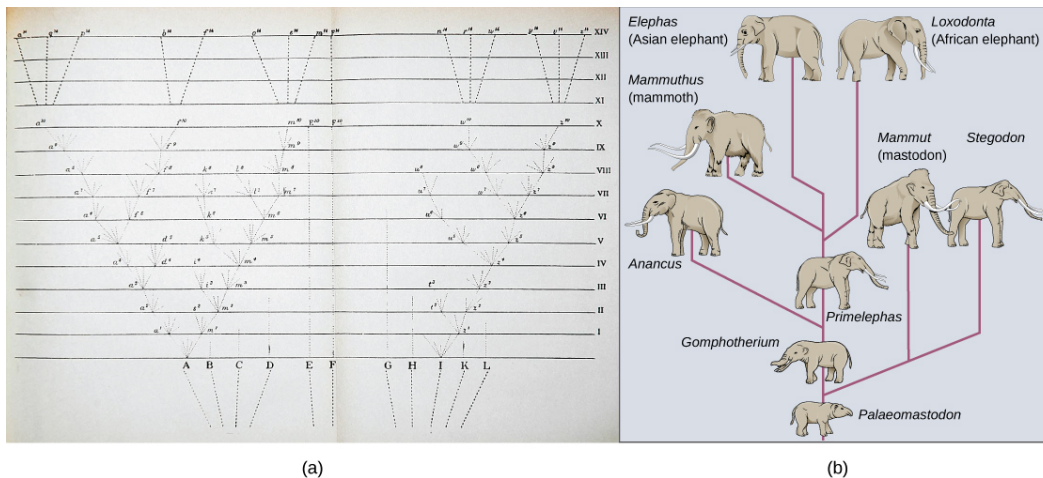 a¹⁴ q¹⁴ p¹⁴ b¹⁴ f¹⁴ o¹⁴ e¹⁴ m¹⁴ F¹⁴ n¹⁴ r¹⁴ w¹⁴ v¹⁴ z¹⁴ XIV
XIII
XII
XI
a¹⁰ f¹⁰ m¹⁰ E¹⁰ F¹⁰ w¹⁰ z¹⁰ X
a⁹ f⁹ m⁹ w⁹ z⁹ IX
a⁸ f⁸ k⁸ l⁸ m⁸ u⁸ w⁸ z⁸ VIII
a⁷ f⁷ l⁷ m⁷ u⁷ w⁷ z⁷ VII
a⁶ f⁶ k⁶ m⁶ u⁶ z⁶ VI
a⁵ d⁵ k⁵ m⁵ u⁵ z⁵ V
a⁴ d⁴ i⁴ m⁴ z⁴ IV
a³ i³ m³ t³ z³ III
a² s² m² z² II
a¹ m¹ z¹ I
A B C D E F G H I K L
(a)
Elephas
(Asian elephant)
Loxodonta
(African elephant)
Mammuthus
(mammoth)
Mammut
(mastodon)
Stegodon
Anancus
Primelephas
Gomphotherium
Palaeomastodon
(b)